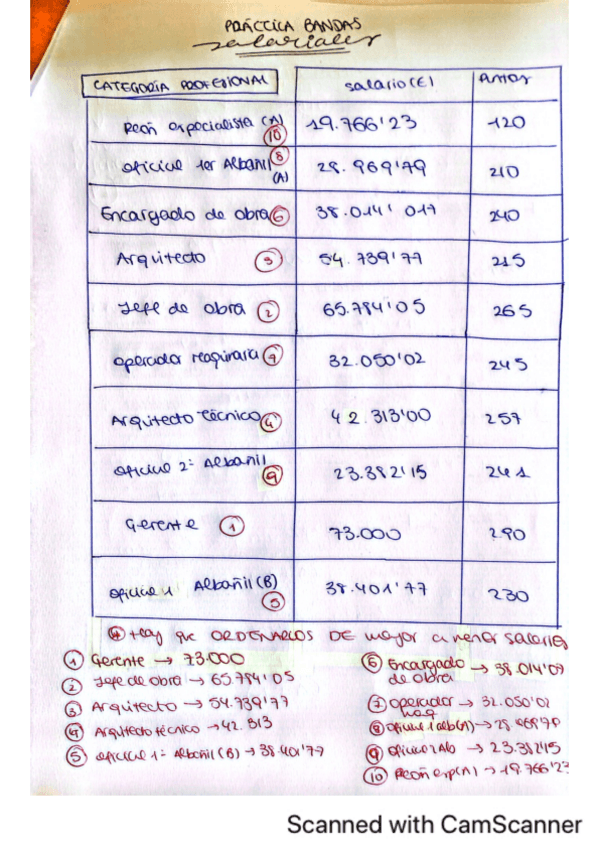 PRÁCTICA BANDAS
salariales
CATEGORÍA PROFESIONAL salario(€) Amos
Peón especialista (A) ⑩ 19.766'23 120
oficial 1er Albañil (A) ⑧ 28.969'79 210
Encargado de obra ⑥ 38.014'017 240
Arquitecto ③ 54.739'77 215
Jefe de obra ② 65.784'05 265
operador maquinaria ⑦ 32.050'02 245
Arquitecto técnico ④ 42.313'00 257
oficial 2ª Albañil ⑨ 23.382'15 241
Gerente ① 73.000 290
oficial 1 Albañil (B) ⑤ 38.401'77 230
Hay que ORDENARLOS DE mayor a menor salario
① Gerente → 73.000
② Jefe de obra → 65.784'05
③ Arquitecto → 54.739'77
④ Arquitecto técnico → 42.313
⑤ oficial 1ª Albañil (B) → 38.401'77
⑥ Encargado de obra → 38.014'07
⑦ operador maq → 32.050'02
⑧ oficial 1 alb(A) → 28.969'79
⑨ oficial 2 Ab → 23.382'15
⑩ Peón esp(A) → 19.766'23
Scanned with CamScanner